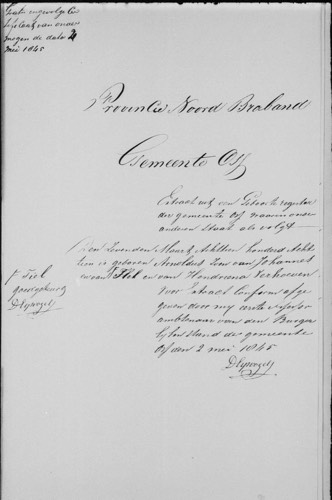 mogen de dato 2
mei 1845
Provincie Noord Braband
Gemeente Oss
Extract uit een Geboorte register
der gemeente Oss waarin onder
anderen staat als volgt
Den zevenden Maart Achttien honderd Acht
tien is geboren Arnoldus Zoon van Johannes
van Thiel en van Hendrina Verhoeven
Voor Extract Conform afge
geven door my
ambtenaar van den Burger
lyken stand der gemeente
Oss den 2 mei 1845
Tiel
goedgekeurd